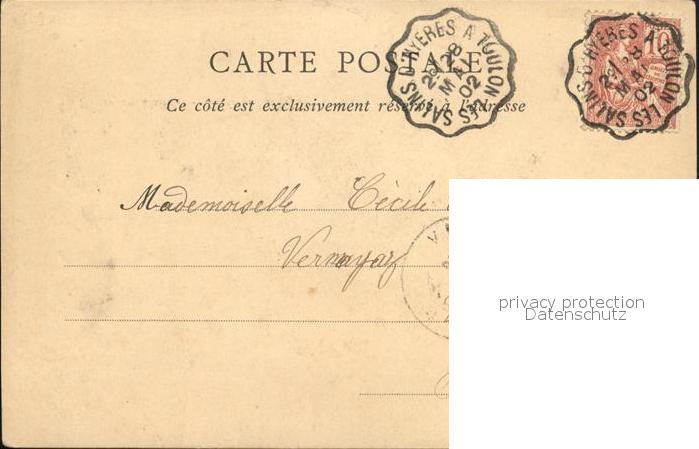 LES SALINS D'HYÈRES A TOULON
2E/28
MAI
02
10
LES SALINS D'HYÈRES A TOULON
MAI
02
CARTE POSTALE
Ce côté est exclusivement réservé à l'adresse
Mademoiselle Cécile
Vernayaz
privacy protection
Datenschutz